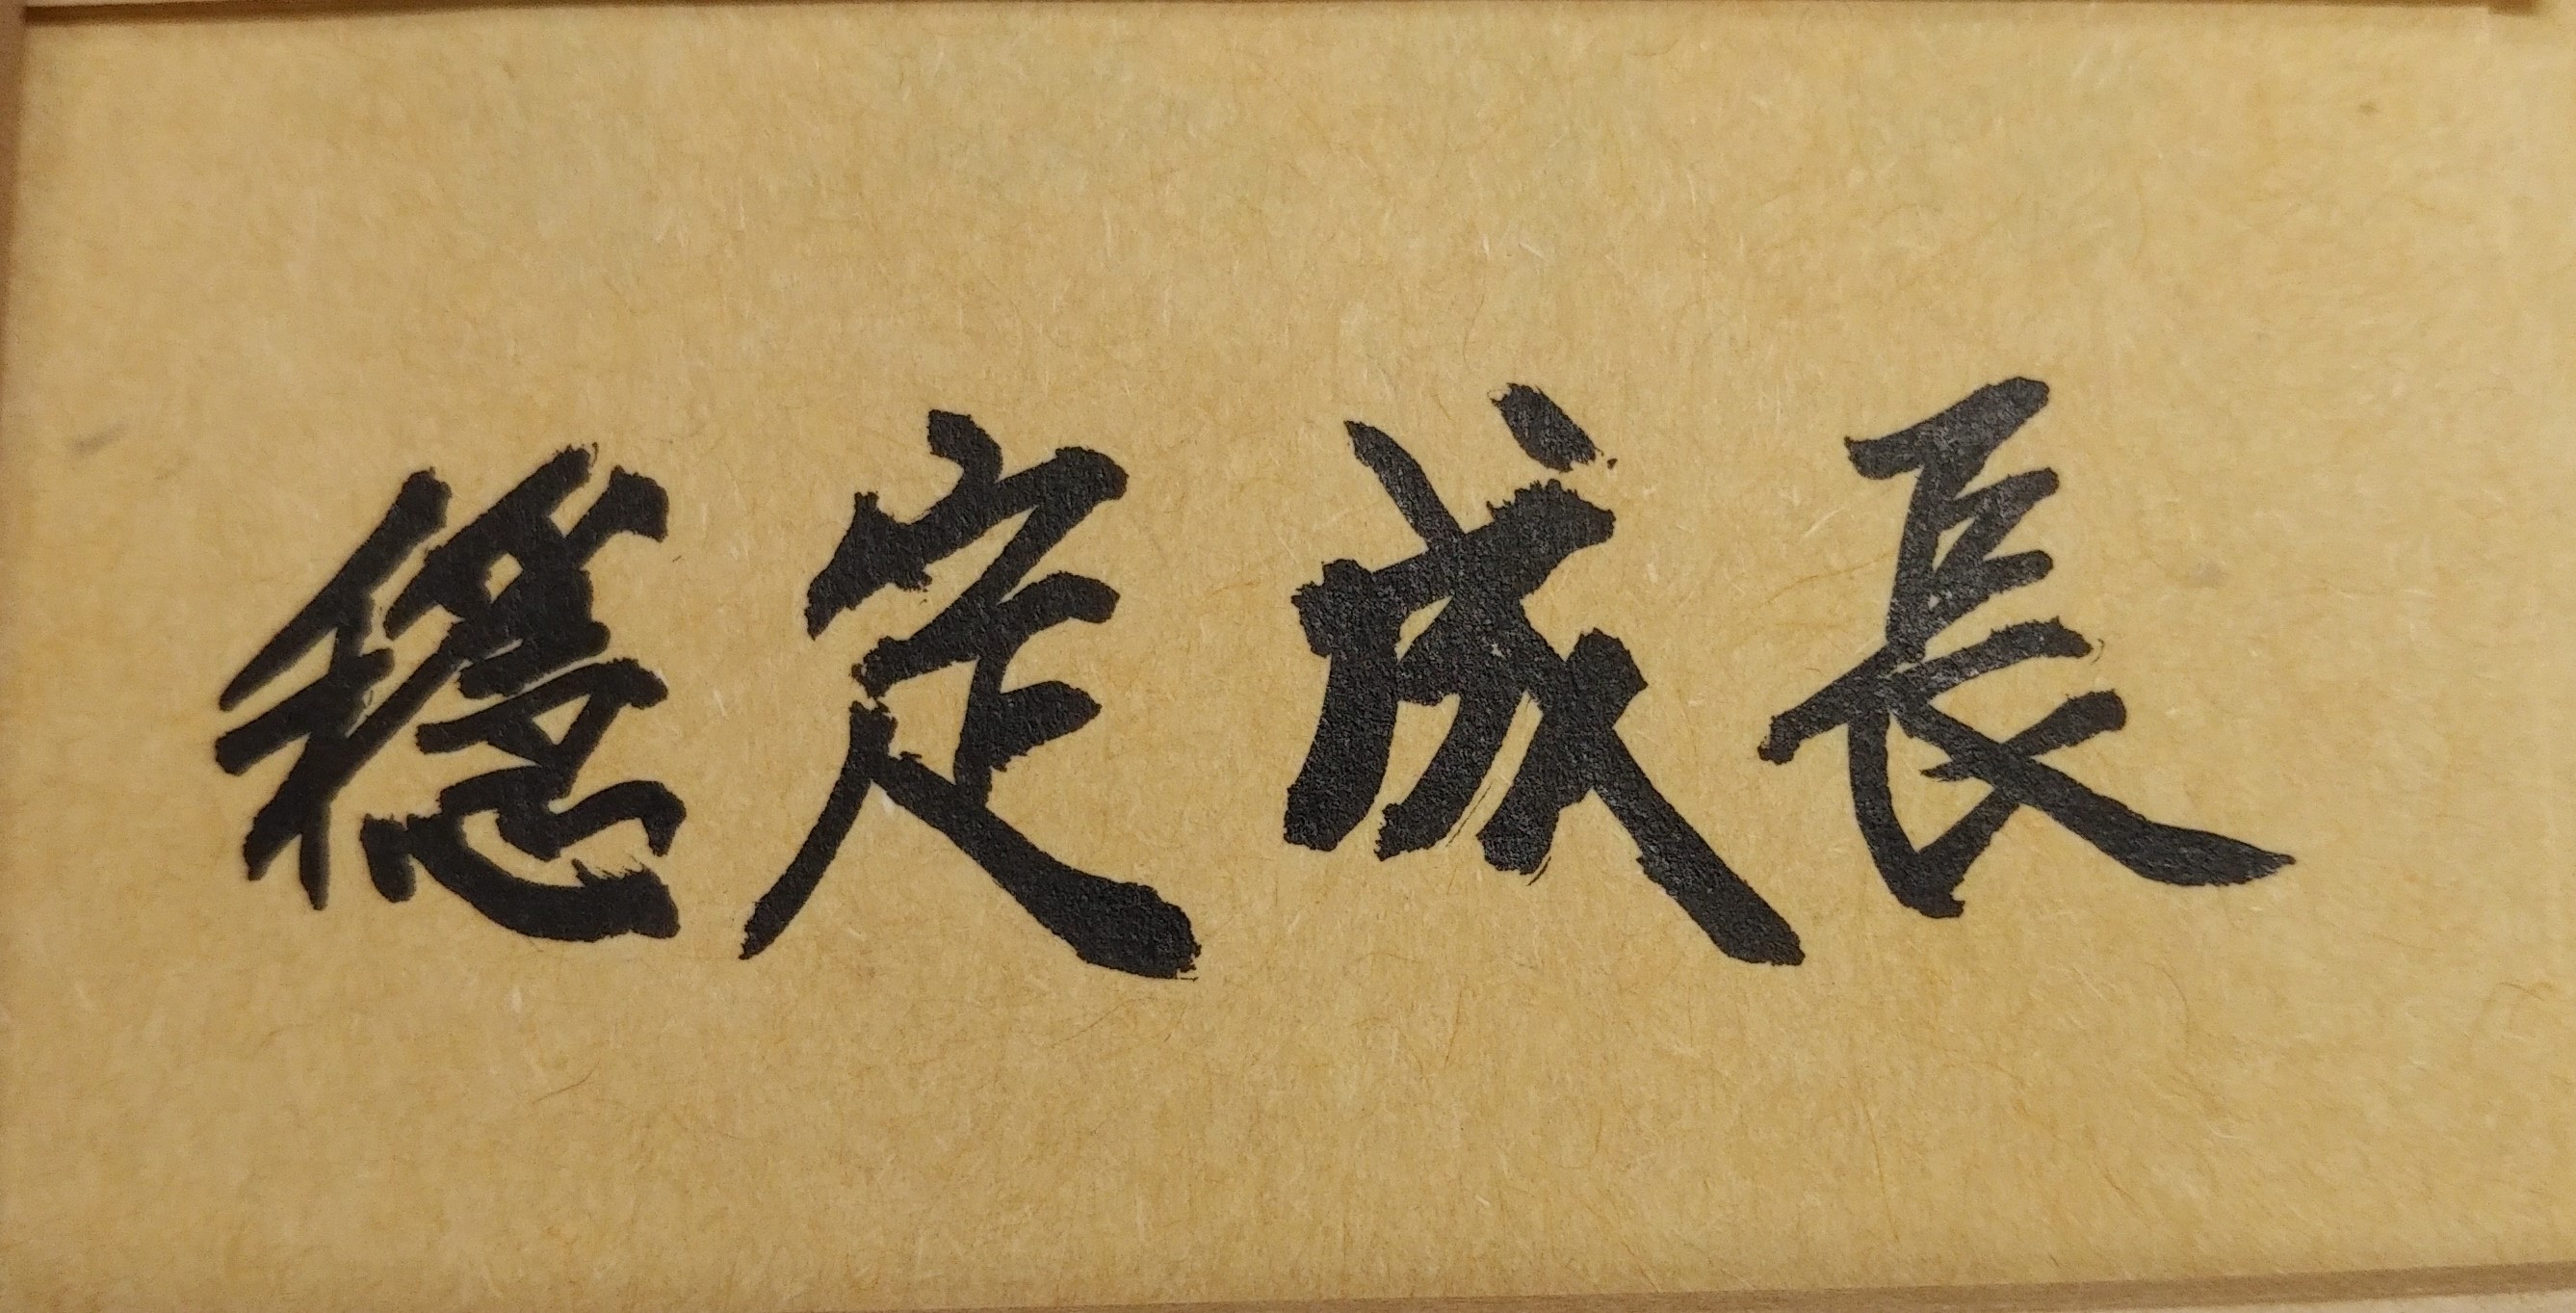 穩定成長